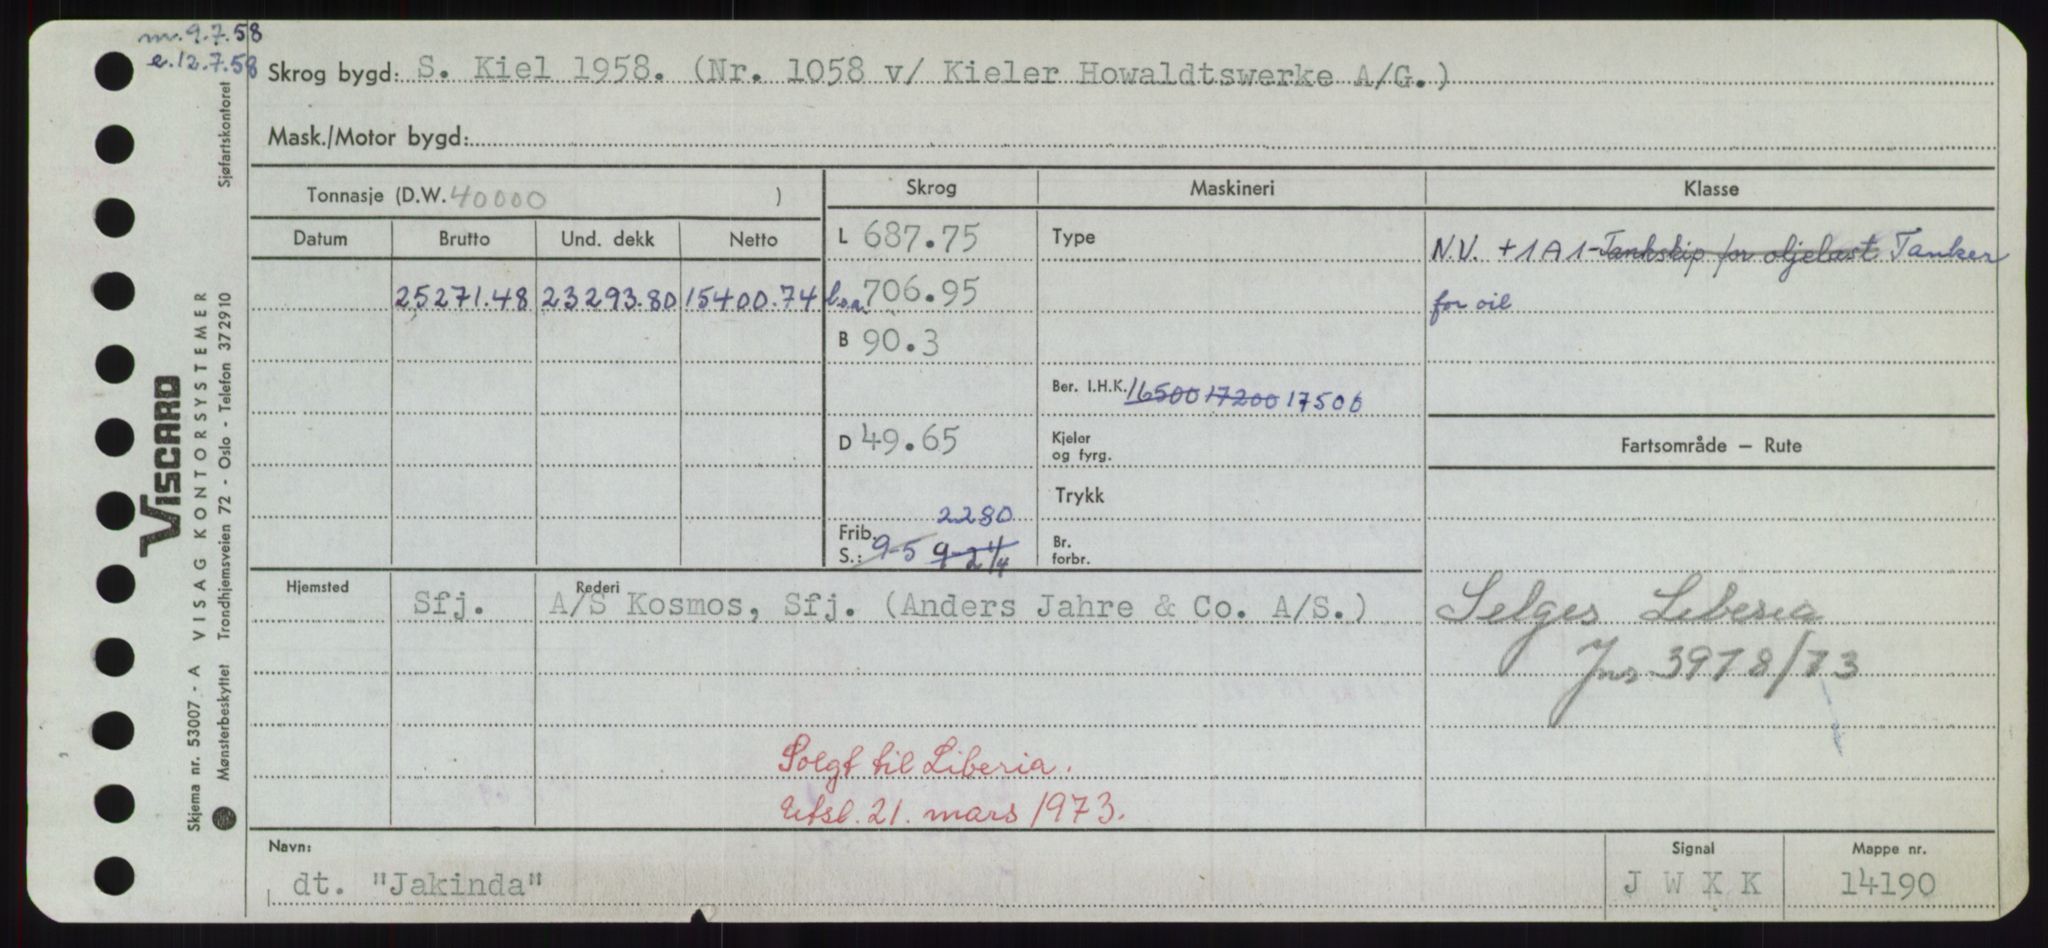 m. 9.7.58
e. 12.7.58
Skrog bygd: S. Kiel 1958. (Nr. 1058 v/ Kieler Howaldtswerke A/G.)
Mask./Motor bygd:
Tonnasje (D.W. 40000 )
Skrog
Maskineri
Klasse
Datum Brutto Und. dekk Netto
L 687.75
Type
N.V. +1A1-Tankskip for oljelast Tanker
25271.48 23293.80 15400.74
b.o.a. 706.95
for oil
B 90.3
Ber. I.H.K. 16500 17200 17500
D 49.65
Kjeler
og fyrg.
Fartsområde — Rute
Trykk
2280
Frib.
S.: 9-5 9-2 1/4
Br.
forbr.
Hjemsted
Rederi
Sfj. A/S Kosmos, Sfj. (Anders Jahre & Co. A/S.)
Selges Liberia
Jns 3978/73
Solgt til Liberia.
Utsl. 21. mars 1973.
Navn:
Signal
Mappe nr.
dt. "Jakinda"
J W X K
14190
Skjema nr. 53007 - A VISAG KONTORSYSTEMER
VISCARD
Mønsterbeskyttet Trondhjemsveien 72 - Oslo - Telefon 372910 Sjøfartskontoret